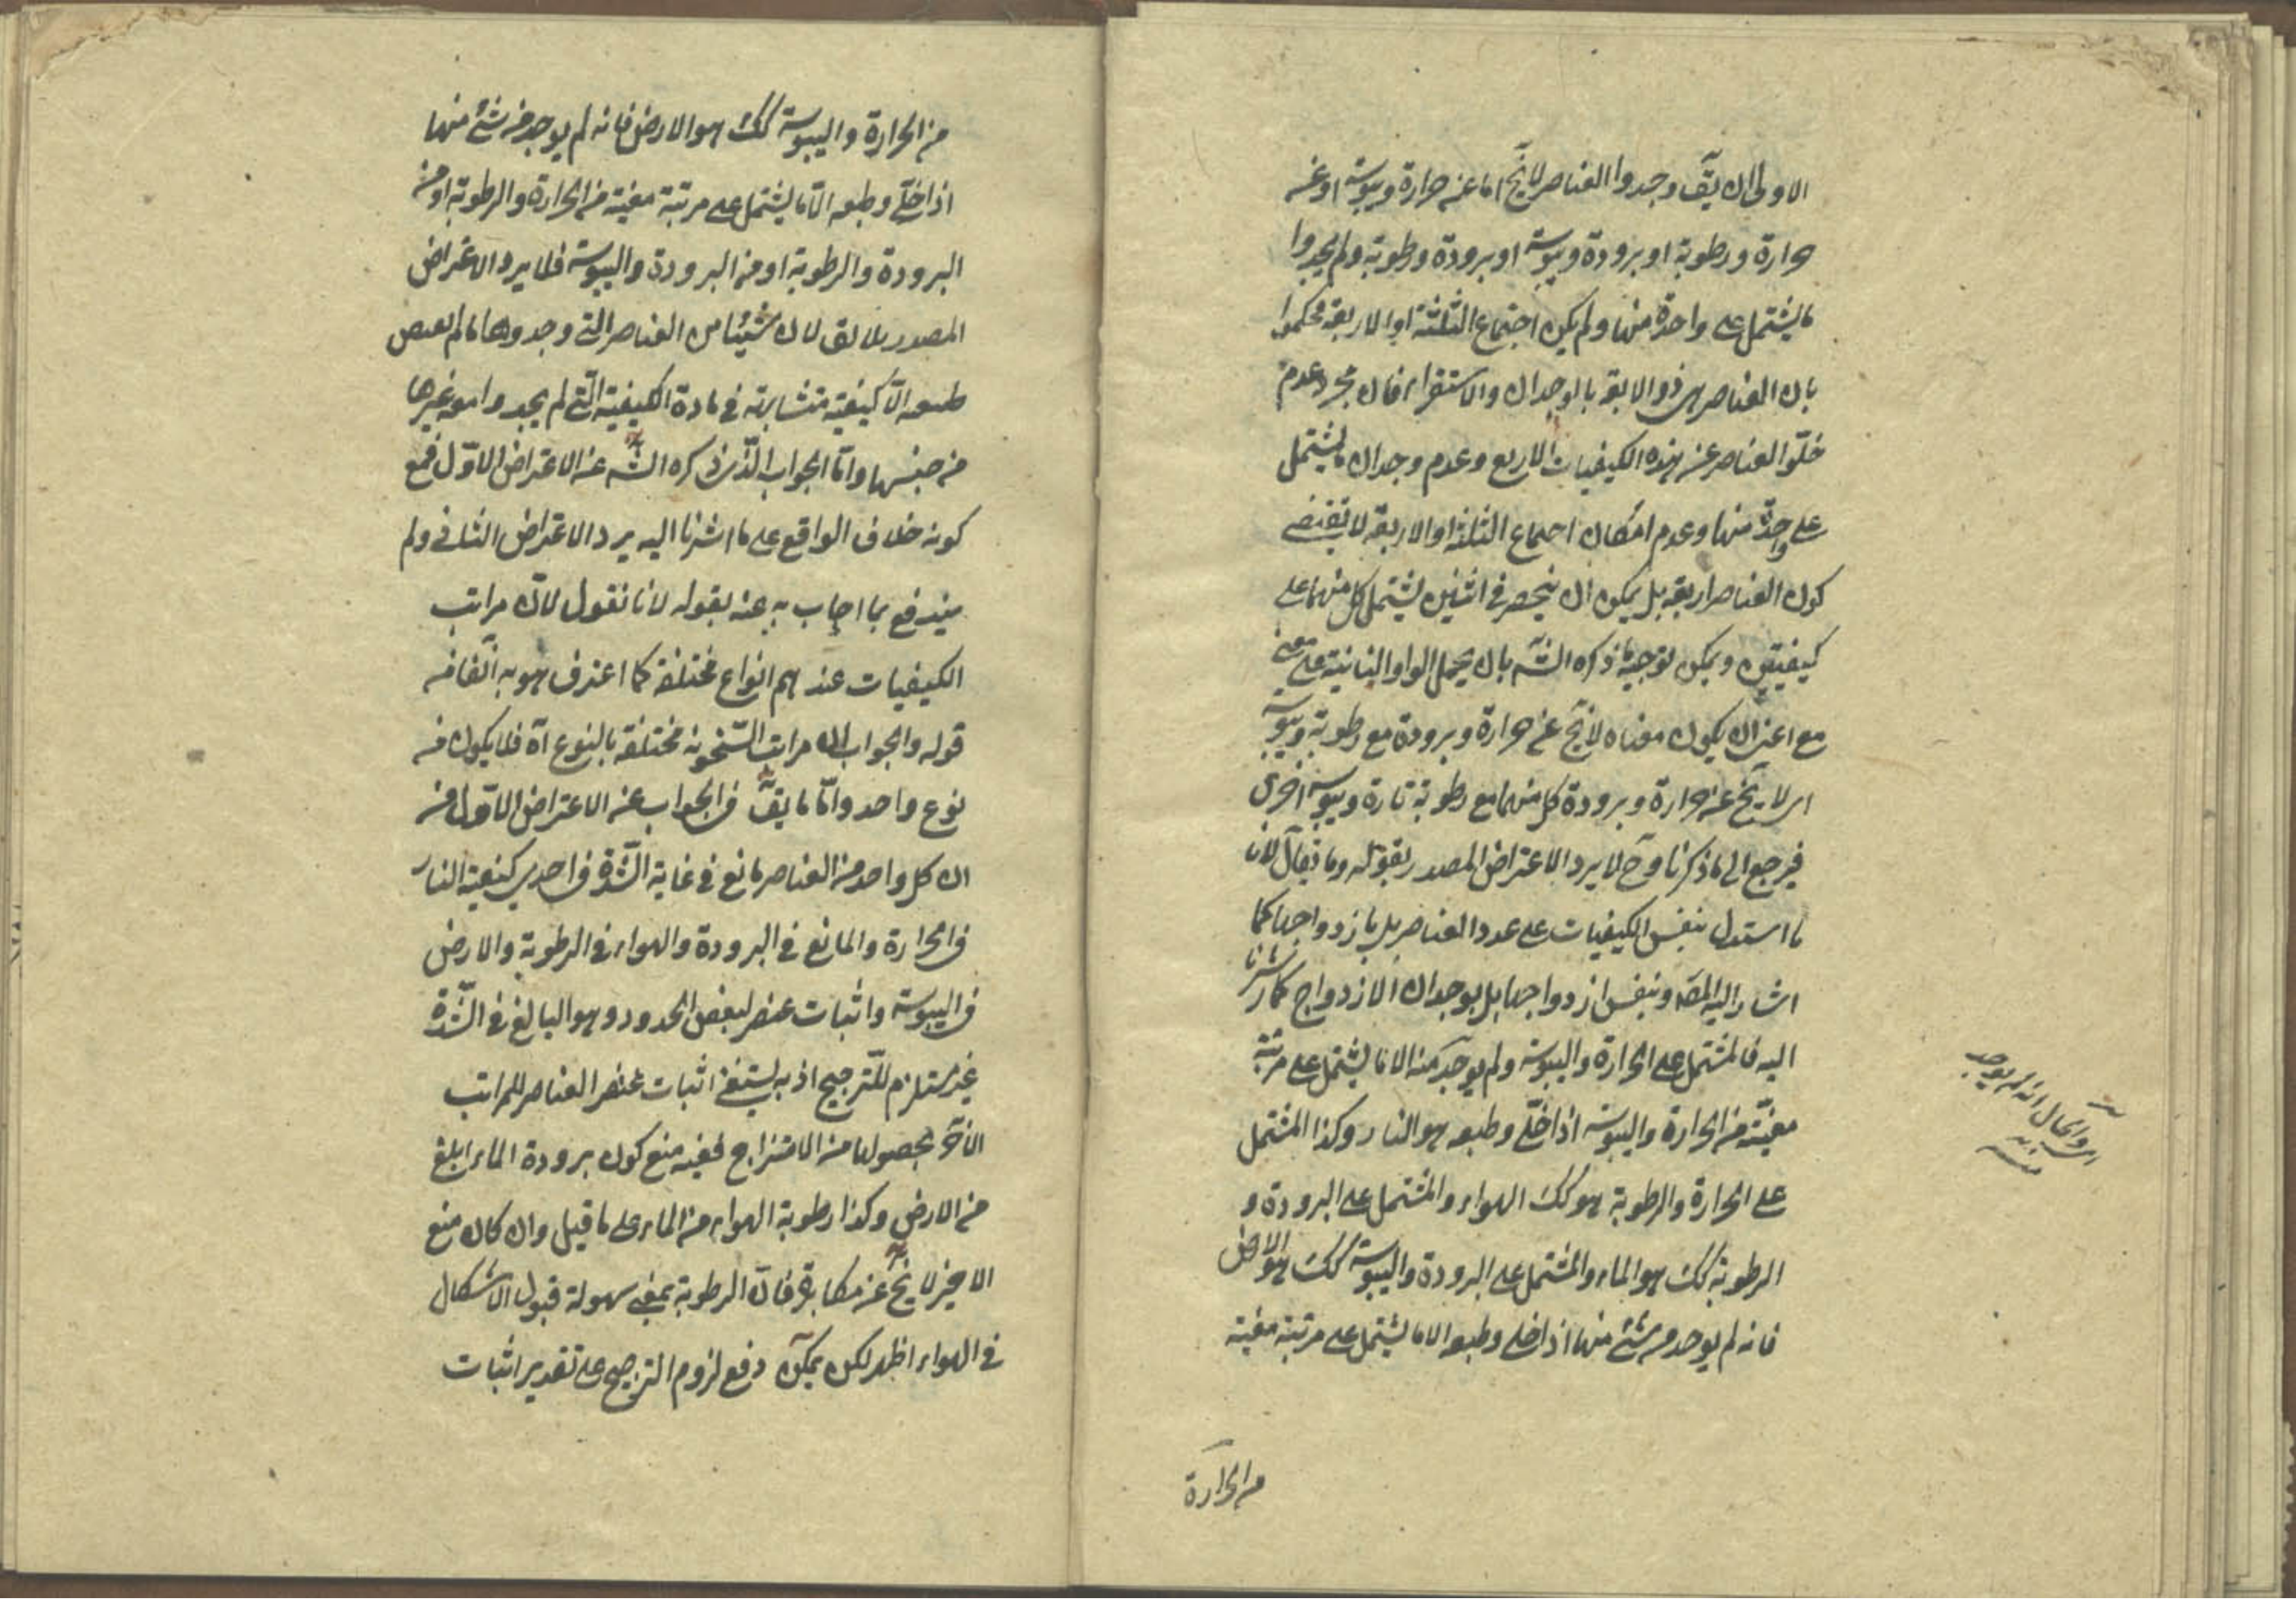 الاولى ان يقَ وجدوا العناصر لا يخَ اما عن حرارة ويبوسة او عن
حرارة ورطوبة او برودة ويبوسة او برودة ورطوبة ولم يجدوا
ما يشتمل على واحدة منها ولم يكن اجتماع الثلثة او الاربعة فحكموا
بان العناصر بالوجدان والاستقراء فان مجرد عدم
خلوّ العناصر عن هذه الكيفيات الاربع وعدم وجدان ما يشتمل
على واحدة منها وعدم امكان اجتماع الثلثة او الاربعة لا يقتضى
كون العناصر اربعة بل يمكن ان ينحصر فى اثنين يشتمل كل منهما على
كيفيتين ويمكن توجيه ما ذكره الشَه بان يحمل الواو الثانية على معنى
مع اعنى ان يكون معناه لا يخَ عن حرارة وبرودة مع رطوبة ويبوسة
اى لا يخَ عن حرارة وبرودة كل منهما مع رطوبة تارة ويبوسة اخرى
فيرجع الى ما ذكرنا وحَ لا يرد الاعتراض المصدر بقوله وما يقال لانا
ما استدل بنفس الكيفيات على عدد العناصر بل بازدواجها كما
اشار اليه المصَ وبنفس ازدواجها بل بوجدان الازدواج كما اشرنا
اليه فالمشتمل على الحرارة واليبوسة ولم يوجد منه الا ما يشتمل على مرتبة
معيّنة من الحرارة واليبوسة اذا خلّى وطبعه هو النار وكذا المشتمل
على الحرارة والرطوبة هو كك الهواء والمشتمل على البرودة و
الرطوبة كك هو الماء والمشتمل على البرودة واليبوسة كك هو الارض
فانه لم يوجد من شئ منها اذا خلى وطبعه الا ما يشتمل على مرتبة معينة
اى والحال انه لم يوجد
منه
من الحرارة
من الحرارة واليبوسة كك هو الارض فانه لم يوجد من شئ منها
اذا خلّى وطبعه الّا ما يشتمل على مرتبة معينة من الحرارة والرطوبة او من
البرودة والرطوبة او من البرودة واليبوسة فلا يرد الاعتراض
المصدر بلا يقال لان شيئا من العناصر التى وجدوها ما لم يقتض
طبعه الّا كيفية متشابهة فى مادة الكيفية الّتى لم يجدوا معه غيرها
من جنسها وامّا الجواب الّذى ذكره الشَه عن الاعتراض الاوّل فمع
كونه خلاف الواقع على ما اشرنا اليه يرد الاعتراض الثانى ولم
يندفع بما اجاب به عنه بقوله لانا نقول لانّ مراتب
الكيفيات عندهم انواع مختلفة كما اعترف هو به آنفا فى
قوله والجواب ان مراتب السّخونة مختلفة بالنوع آه فلا يكون من
نوع واحد وامّا ما يقَ فى الجواب عن الاعتراض الاوّل من
ان كل واحد من العناصر بالغ فى غاية الشّدة فى احدى كيفيته النار
فى الحرارة والماء بالغ فى البرودة والهواء فى الرطوبة والارض
فى اليبوسة واثبات عنصر لبعض الحدود وهو البالغ فى الشّدة
غير مستلزم للترجيح اذ به يستغنى اثبات عنصر العناصر للمراتب
الاخر بحصولها من الامتزاج ففيه منع كون برودة الماء ابلغ
من الارض وكذا رطوبة الهواء من الماء على ما قيل وان كان منع
الاخير لا يخَ عن مكابرة فانّ الرطوبة بمعنى سهولة قبول الاشكال
فى الهواء اظهر لكن يمكن دفع لزوم الترجيح على تقدير اثبات